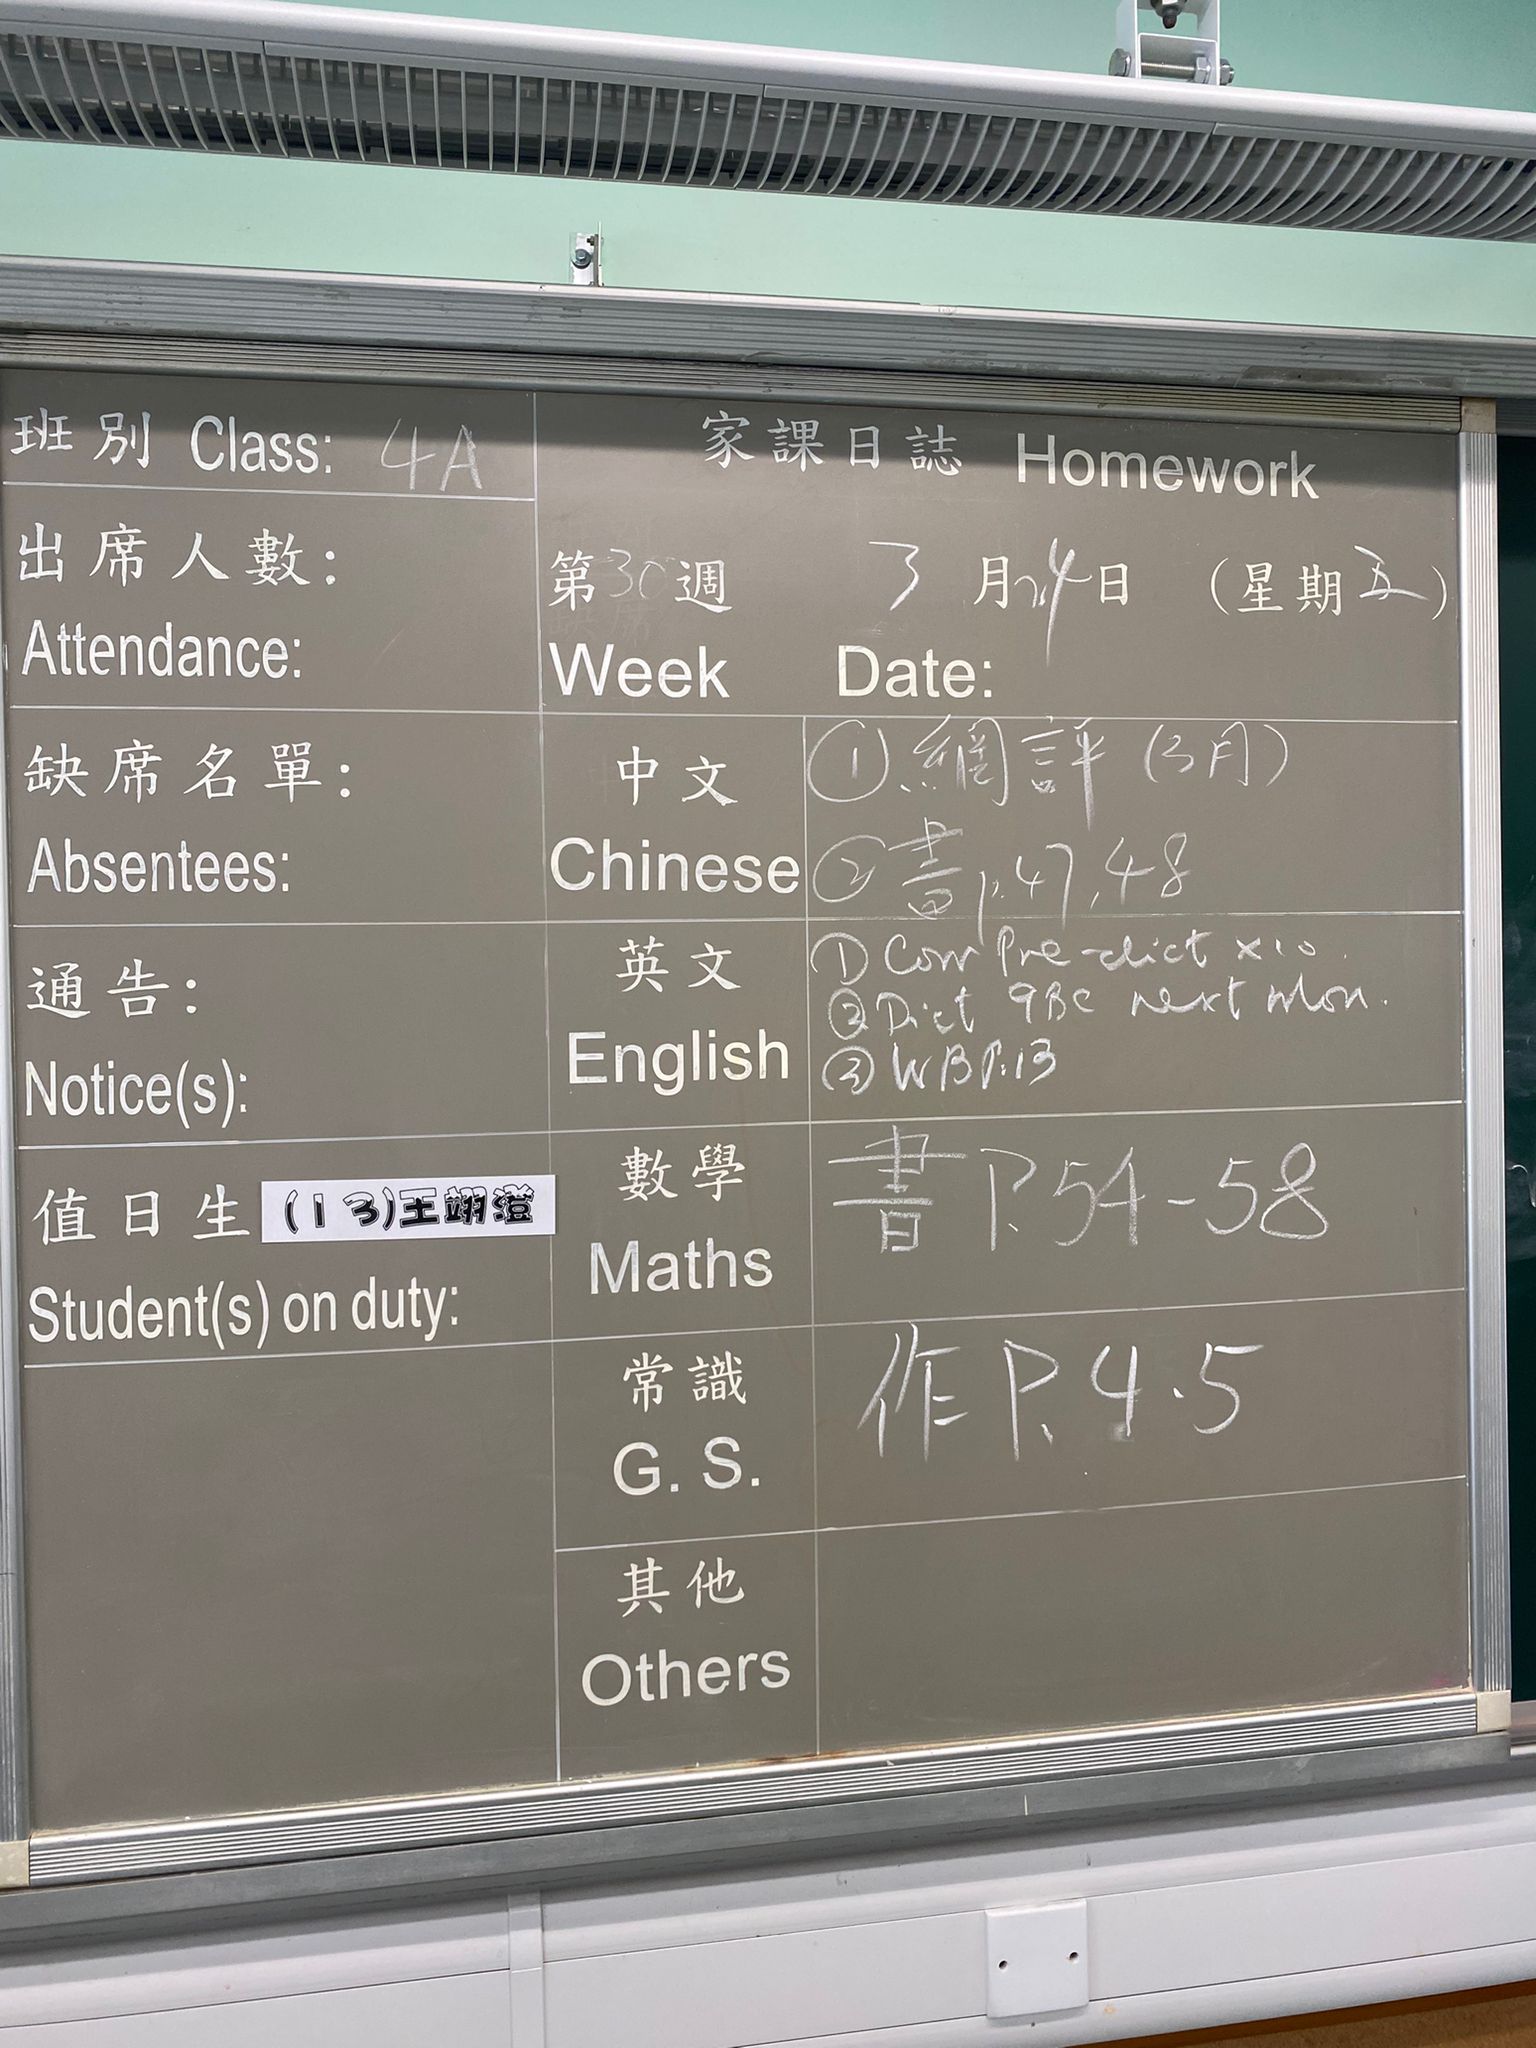 班別 Class: 4A
出席人數:
Attendance:
缺席名單:
Absentees:
通告:
Notice(s):
值日生 (13)王翊澄
Student(s) on duty:
家課日誌 Homework
第30週 3月24日 (星期五)
Week Date:
中文
Chinese
①網評(3月)
②書p.47,48
英文
English
① Corr Pre-dict x10.
② Dict 9BC next Mon.
③ WB P.13
數學
Maths
書 P.54-58
常識
G. S.
作 P.4.5
其他
Others